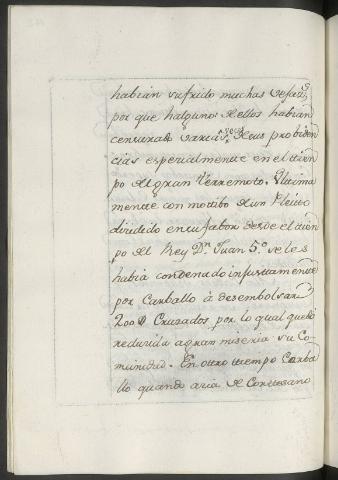 habian sufrido muchas vejaz.s
por que halgunos de ellos habian
censurado varias veces de sus probiden
cias especialmente en el tiem
po del gran Terremoto. Ultima
mente con motibo de un Pleito
dividido en su fabor desde el tiem
po del Rey D.n Juan 5.o se les
habia condenado injustamente
por Carballo à desembolsar
200 Ø Cruzados, por lo qual quedó
reducida a gran miseria su Co-
munidad. En otro tiempo Carba
llo quando acia de Cortesano